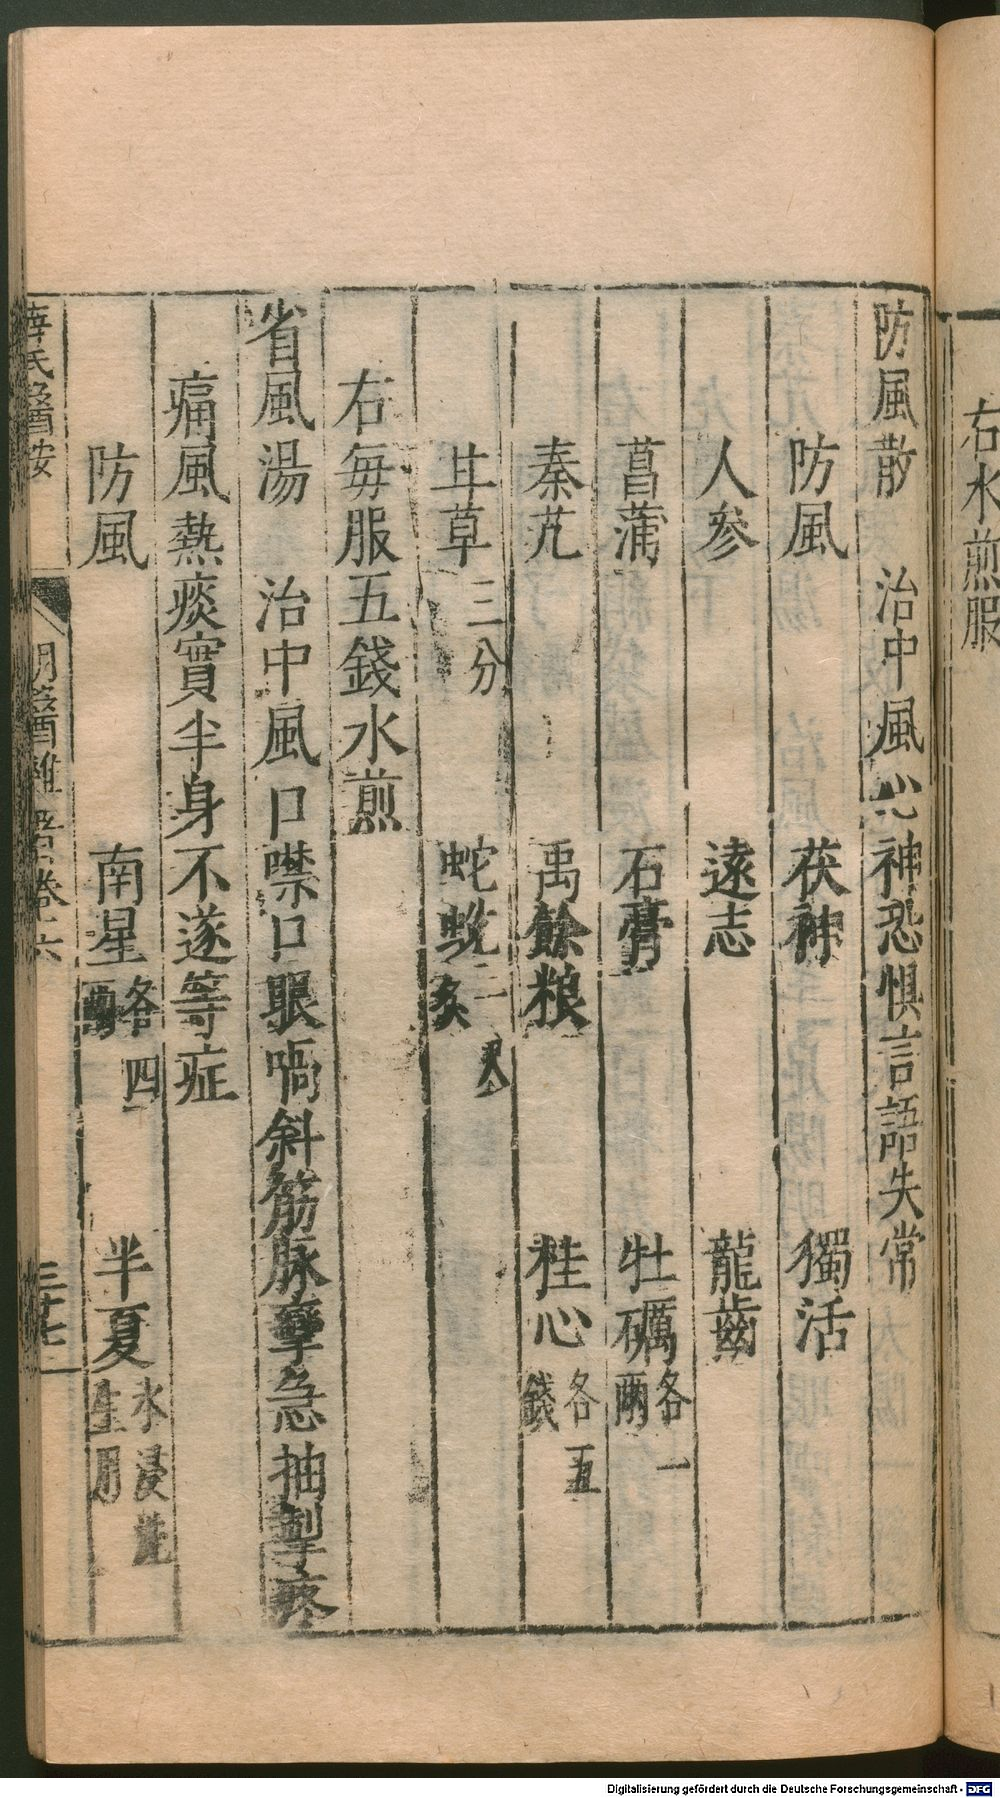 右水煎服
防風散　治中風心神恐惧言語失常
防風　茯神　獨活
人參　遠志　龍齒
菖蒲　石膏　牡礪各一兩
秦艽　禹餘粮　桂心各五錢
甘草三分　蛇蛻一尺炙
右每服五錢水煎
省風湯　治中風口噤口眼喎斜筋脉攣急抽掣疼
痛風熱痰實半身不遂等症
防風　南星各四兩　半夏水浸洗生用
薛氏醫按
明醫雜著卷六
三十七
Digitalisierung gefördert durch die Deutsche Forschungsgemeinschaft - DFG